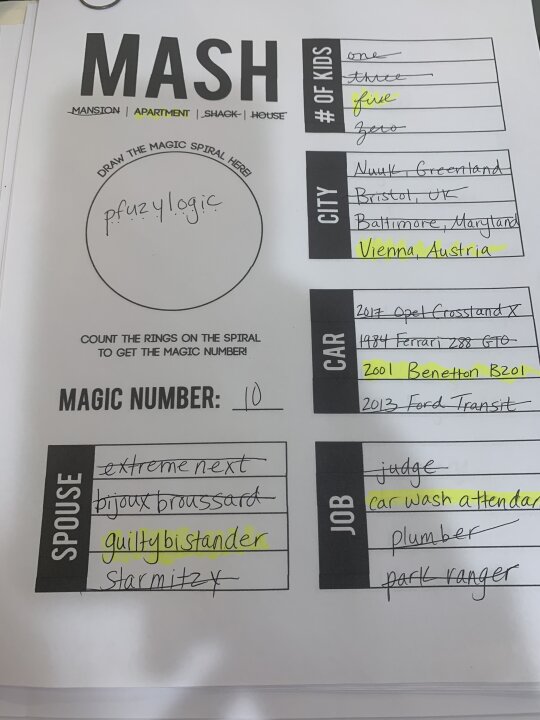 MASH
MANSION | APARTMENT | SHACK | HOUSE
DRAW THE MAGIC SPIRAL HERE!
pfuzylogic
COUNT THE RINGS ON THE SPIRAL
TO GET THE MAGIC NUMBER!
MAGIC NUMBER: 10
# OF KIDS
one
three
five
zero
CITY
Nuuk, Greenland
Bristol, UK
Baltimore, Maryland
Vienna, Austria
CAR
2017 Opel Crosstand X
1984 Ferrari 288 GTO
2001 Benetton B201
2013 Ford Transit
SPOUSE
extreme next
bijoux broussard
guiltybistander
starmitzy
JOB
judge
car wash attendan
plumber
park ranger